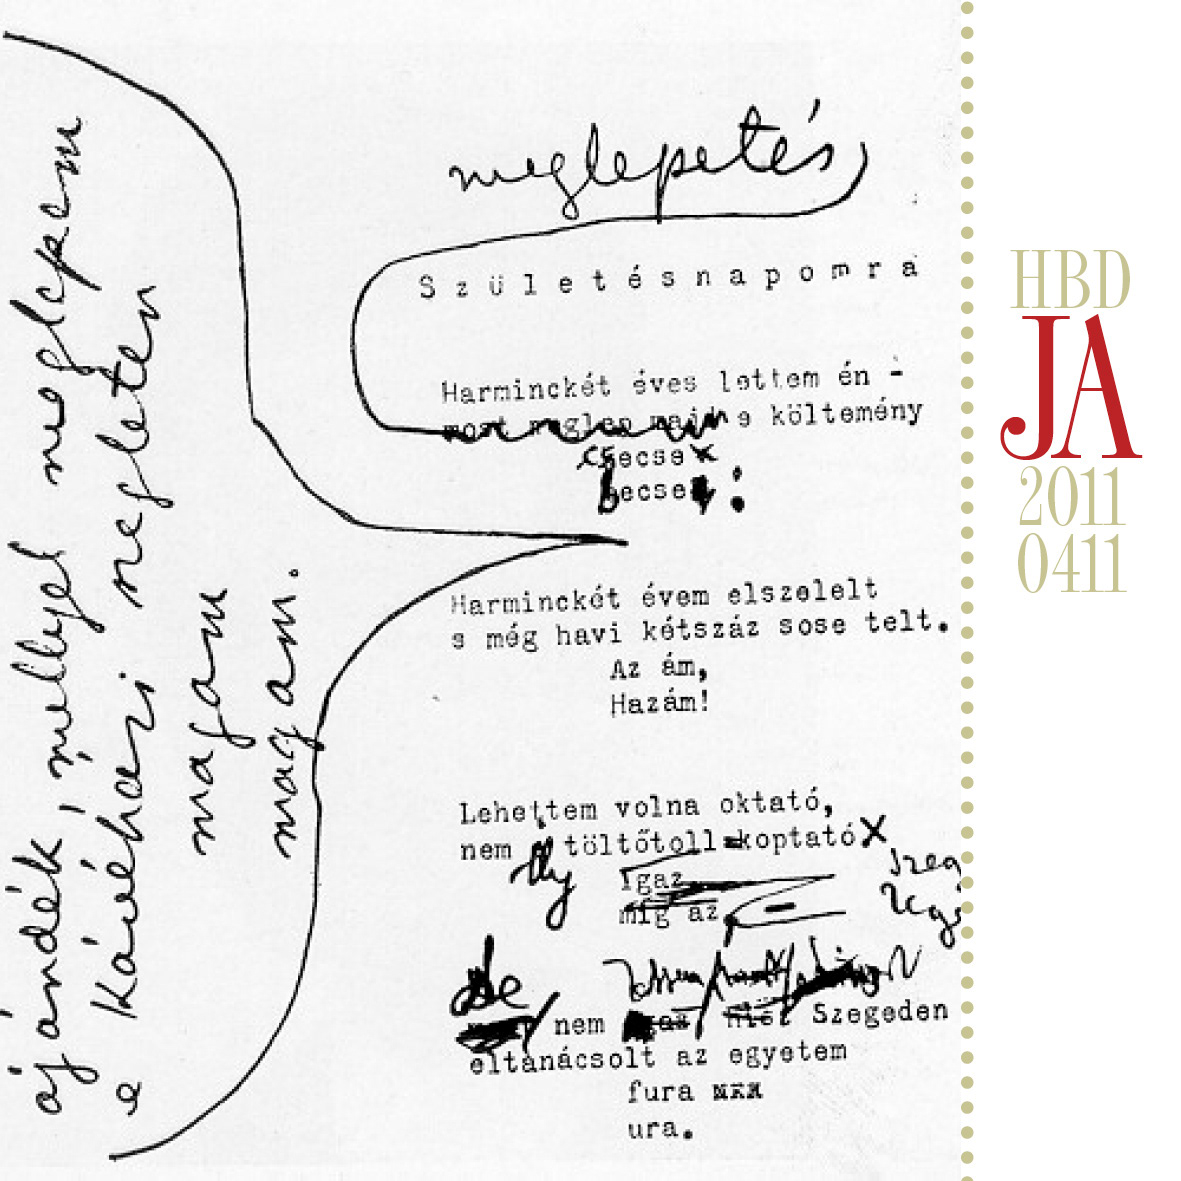 meglepetés
Születésnapomra
Harminckét éves lettem én -
most meglep majd e költemény
csecse
becse:
ajándék, mellyel meglepem
e kávéházi szegleten
magam
magam.
Harminckét évem elszelelt
s még havi kétszáz sose telt.
Az ám,
Hazám!
Lehettem volna oktató,
nem ily töltőtoll koptató
Igaz
míg az
szeg
legé
De nem Szegeden
eltanácsolt az egyetem
fura
ura.
HBD
JA
2011
0411